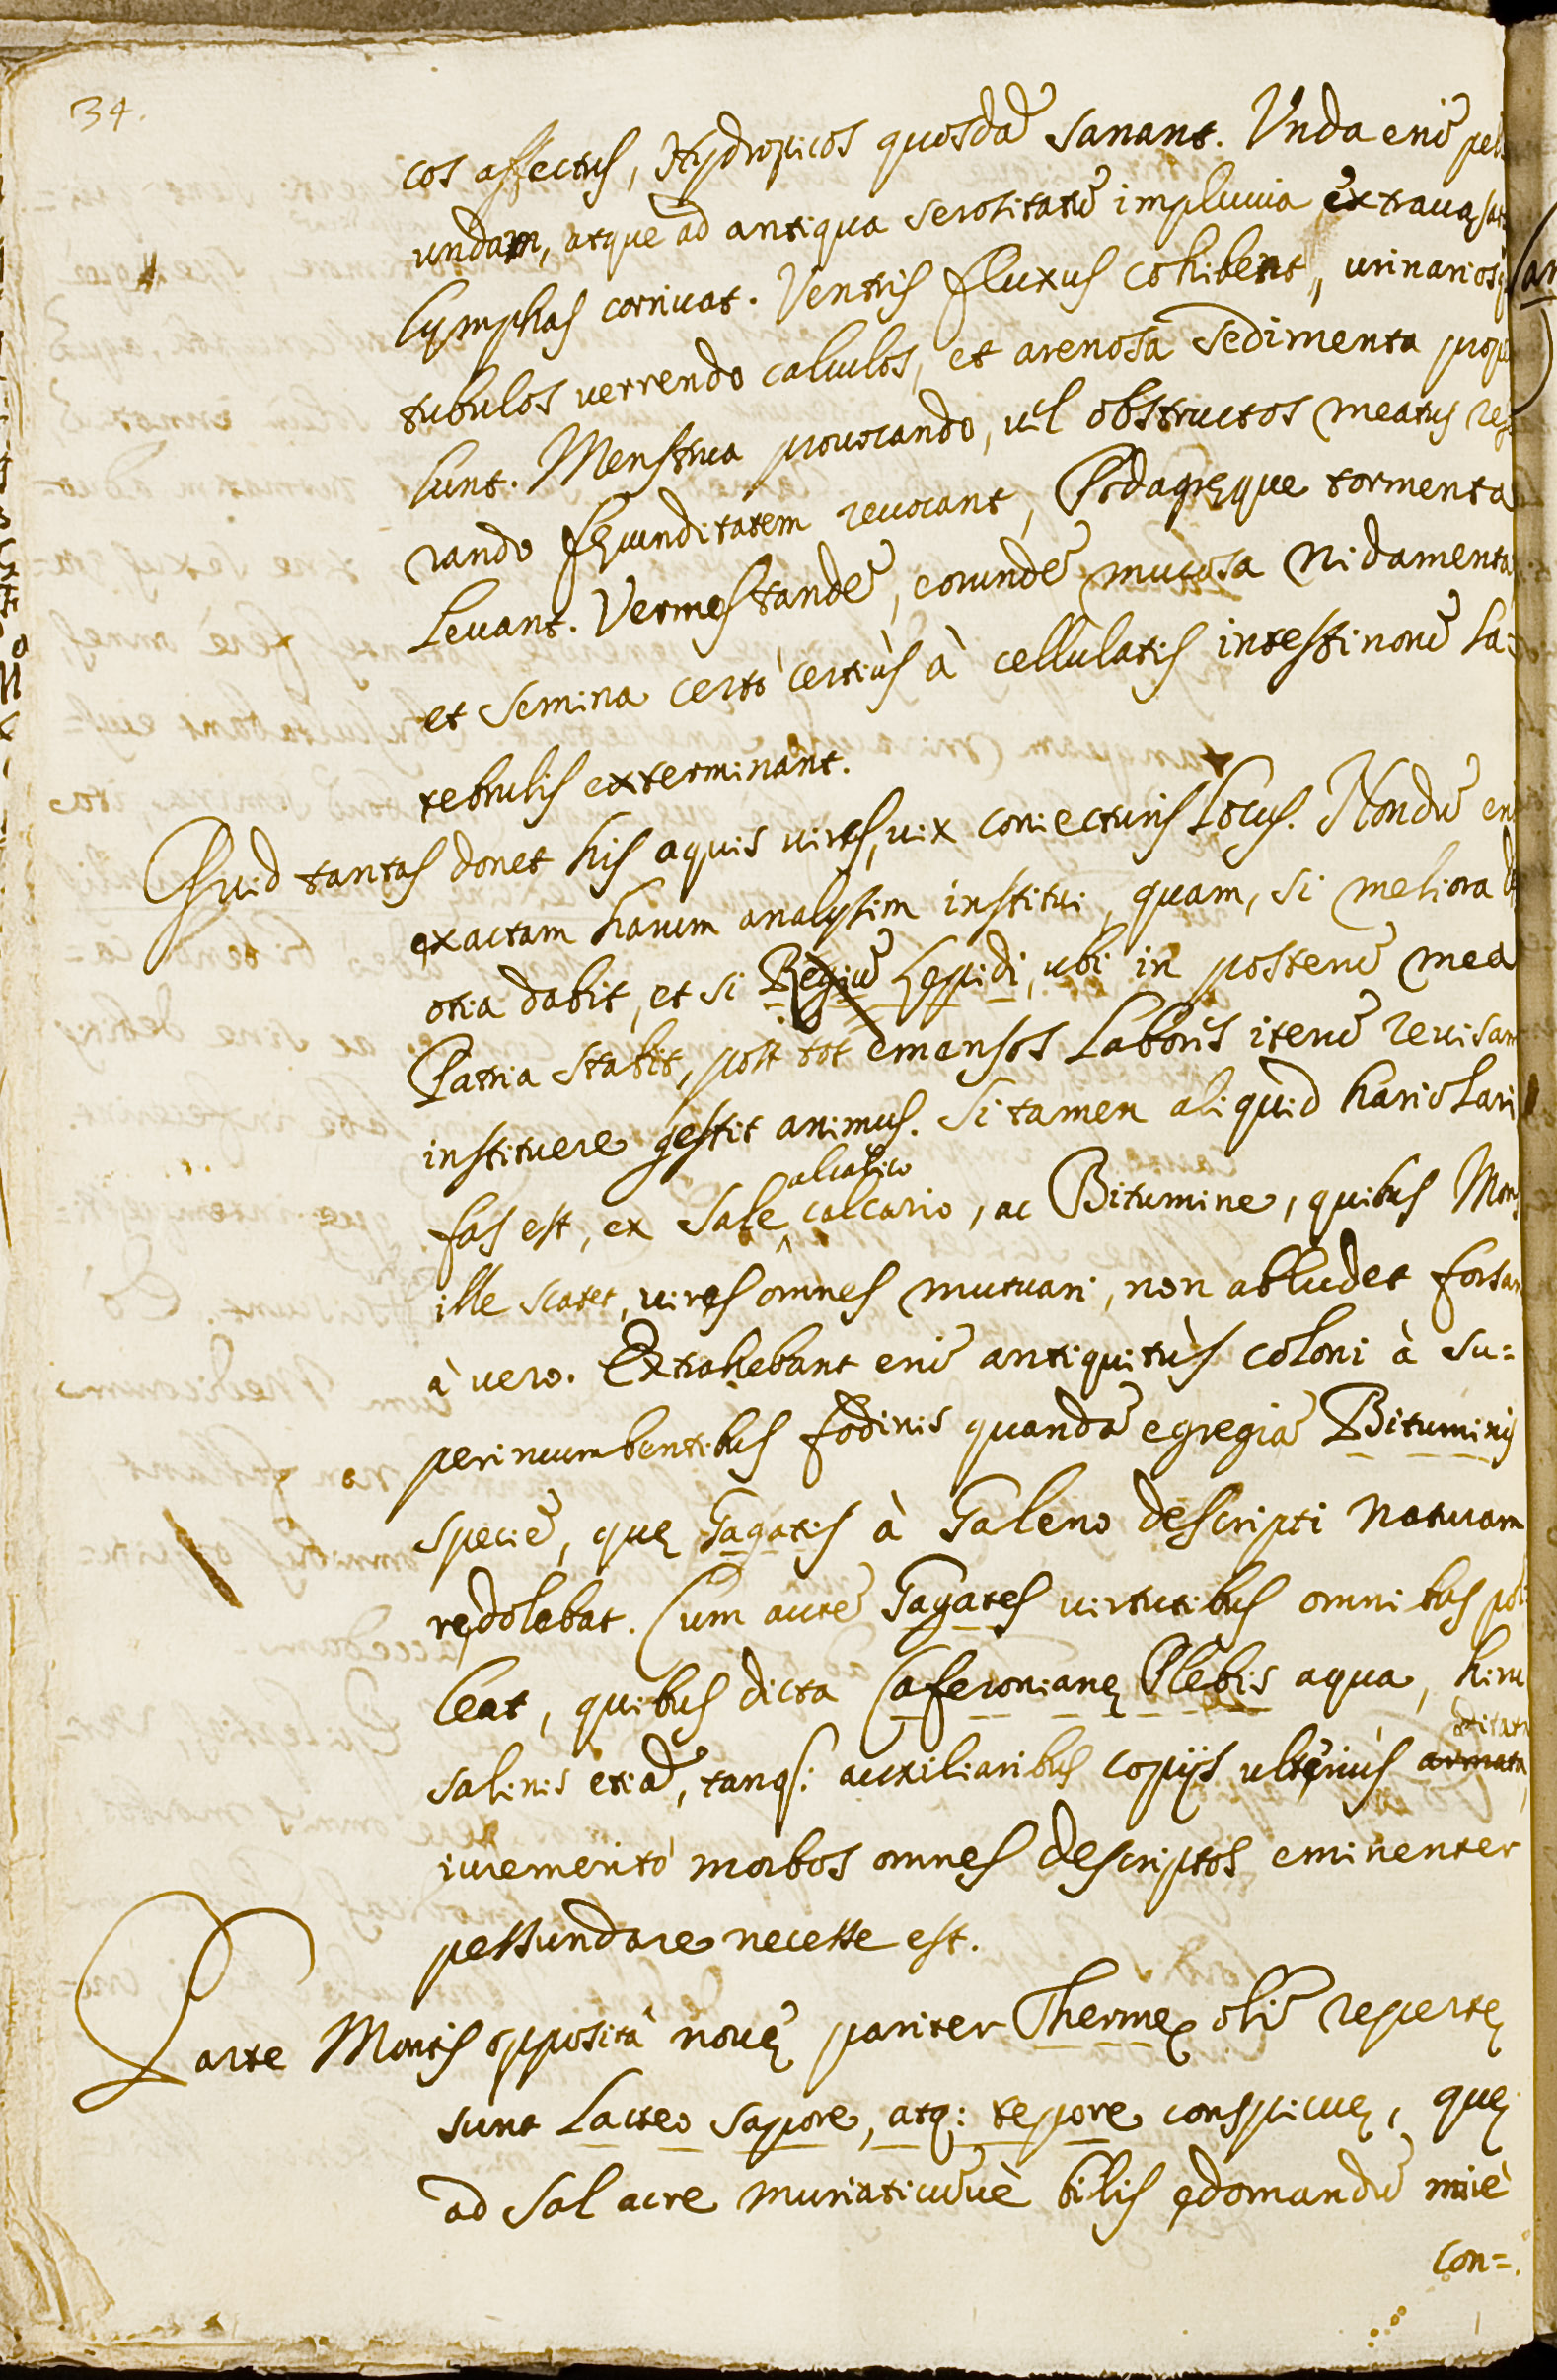 34.
cos affectus, Hydropicos quosdā sanant. Vnda enī
undam, atque ad antiqua serositatū impluuia extrauasa
lymphas corriuat. Ventris fluxus cohibent, urinarios
tubulos uerrendo calculos, et arenosa sedimenta prope
lunt. Menstrua prouocando, uel obstructos meatus rese
rando fęcunditatem reuocant, Podagręque tormenta
Leuant. Vermes tandē, eorundē mucosa nidamenta
et semina certò certiùs à cellulatis intestinorū La=
tebrulis exterminant.
Quid tantas donet his aquis uires, uix coniecturis Locus. Nondū eni
exactam harum analysim institui, quam, si meliora
otia dabit, et si Regiū Lepidi, ubi in posterū mea
Patria stabit, post tot emensos Labores iterū reuisam
instituere gestit animus. Si tamen aliquid hariolari
alcalico
fas est, ex Sale calcario, ac Bitumine, quibus Mons
ille scatet, uires omnes mutuari, non abludet forsan
à uero. Extrahebant enī antiquitùs coloni à su=
perincumbentibus fodinis quandā egregiā Bituminis
speciē, quę Gagatis à Galeno descripti naturam
redolebat. Cum autē Gagates uirtutibus omnibus pol
leat, quibus dicta Caferonianę Plebis aqua, hinc
ditata
salinis etiā, tanq: auxiliaribus copijs ulteriùs armata
iuremeritò morbos omnes descriptos eminenter
pessundare necesse est.
Parte Montis opposità nouę pariter Thermę olī repertę
sunt Lacteo sapore, atq: tepore conspicuę, quę
ad Sal acre muriaticūuè bilis edomandū mirè
con=